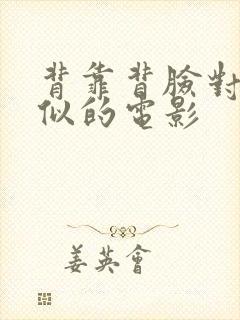 背靠背臉對
似的電影
姜英會